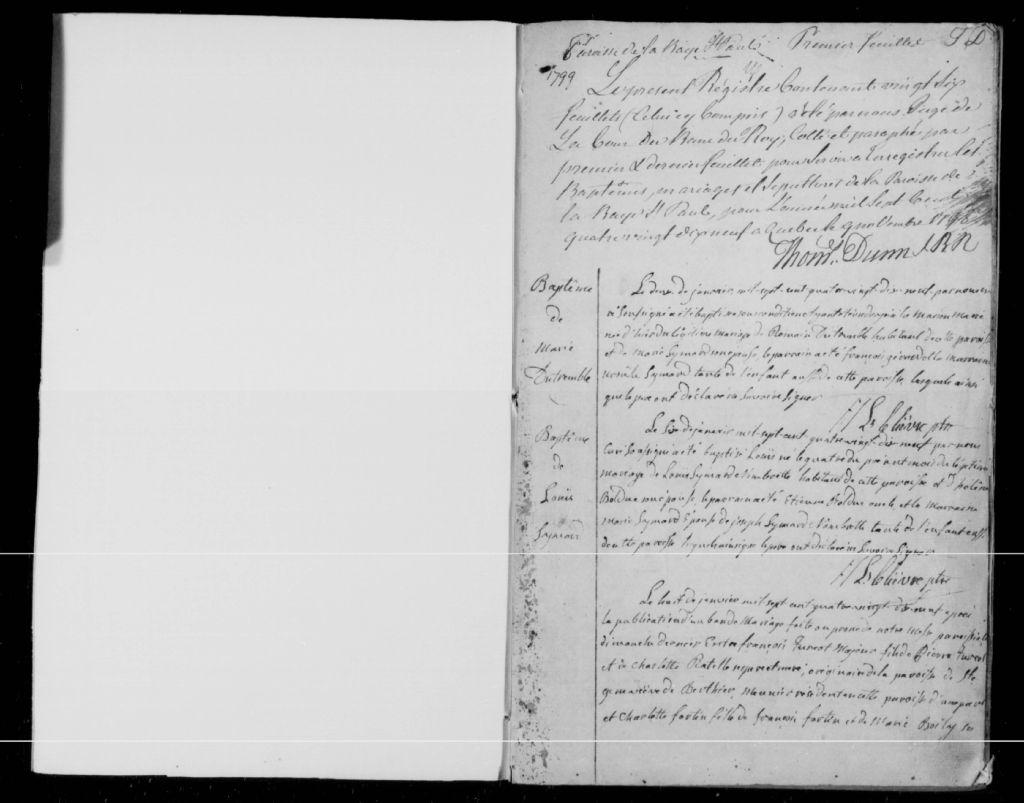 Paroisse de la Baye St Paul Premier feuillet T D
1799
Le present Régistre Contenant vingt six
feuillets (Celuicy Compris) a été par nous Juge de
La Cour Du Banc du Roy, Cotté et paraphé par
premier & dernier feuillet pour servir a Enregistrer les
Baptêmes, mariages et Sepultures de la Paroisse de
la Baye St Paul, pour L'année mil Sept Cent
quatre vingt dix neuf a Quebec le 9 novembre 1798
Thoms. Dunn J.B.R
Baptême
de
Marie
Dutremble
Le deux de janvier mil sept cent quatre vingt dix neuf par nous
soussigné a été baptisée sous condition Marie
née d'hier du légitime mariage de Romain Dutremble habitant de cette paroisse
et de Marie Symard son epouse, le parrain a été françois la marraine
Symard tante de l'enfant aussi de cette paroisse, lesquels ainsi
que le pere ont déclaré ne savoir signer
J Lelièvre ptre
Baptême
de
Louis
Symard
Le Six de janvier mil sept cent quatre vingt dix neuf par nous
Curé soussigné a été baptisé Louis né le quatre du présent mois du légitime
mariage de Louis Symard habitant de cette paroisse et d'
Bolduc son epouse, le parrain a été Etienne Bolduc oncle, et la marraine
Marie Symard Epouse de joseph Symard tante de l'enfant aussi
de cette paroisse lesquels ainsi que le pere ont déclaré ne Savoir Signer
J Lelièvre ptre
Le huit de janvier mil sept cent quatre vingt dix neuf après
la publication d'un bande Mariage faite au prone de notre Messe paroissiale
dimanche dernier Entre françois Majeur fils de Pierre
et de Charlotte Ratelle originaire de la paroisse de Ste
genevieve de Berthier, Meunier résident en cette paroisse d'une part
et Charlotte fortin fille de françois fortin et de Marie Boily ses